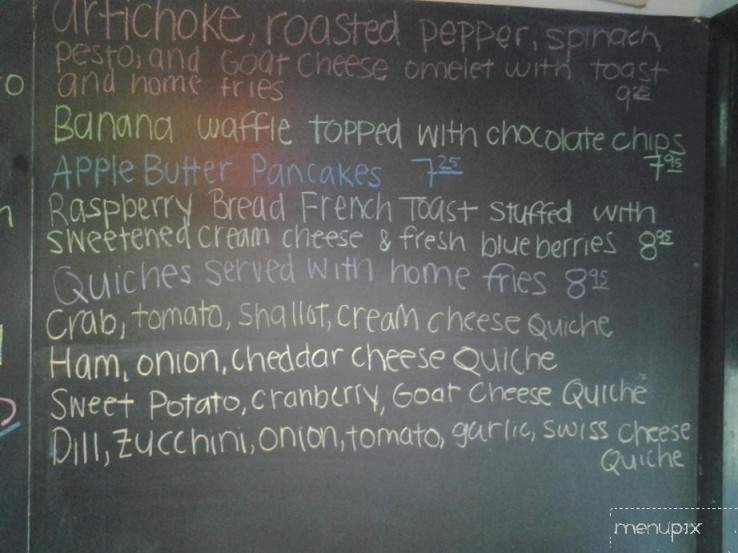 artichoke, roasted pepper, spinach
pesto, and Goat Cheese omelet with toast
and home fries 9.95
Banana waffle topped with chocolate chips
7.95
Apple Butter Pancakes 7.25
Raspberry Bread French Toast stuffed with
sweetened cream cheese & fresh blueberries 8.95
Quiches served with home fries 8.95
Crab, tomato, shallot, cream cheese Quiche
Ham, onion, cheddar cheese Quiche
Sweet Potato, cranberry, Goat Cheese Quiche
Dill, Zucchini, onion, tomato, garlic, swiss cheese
Quiche
menupix